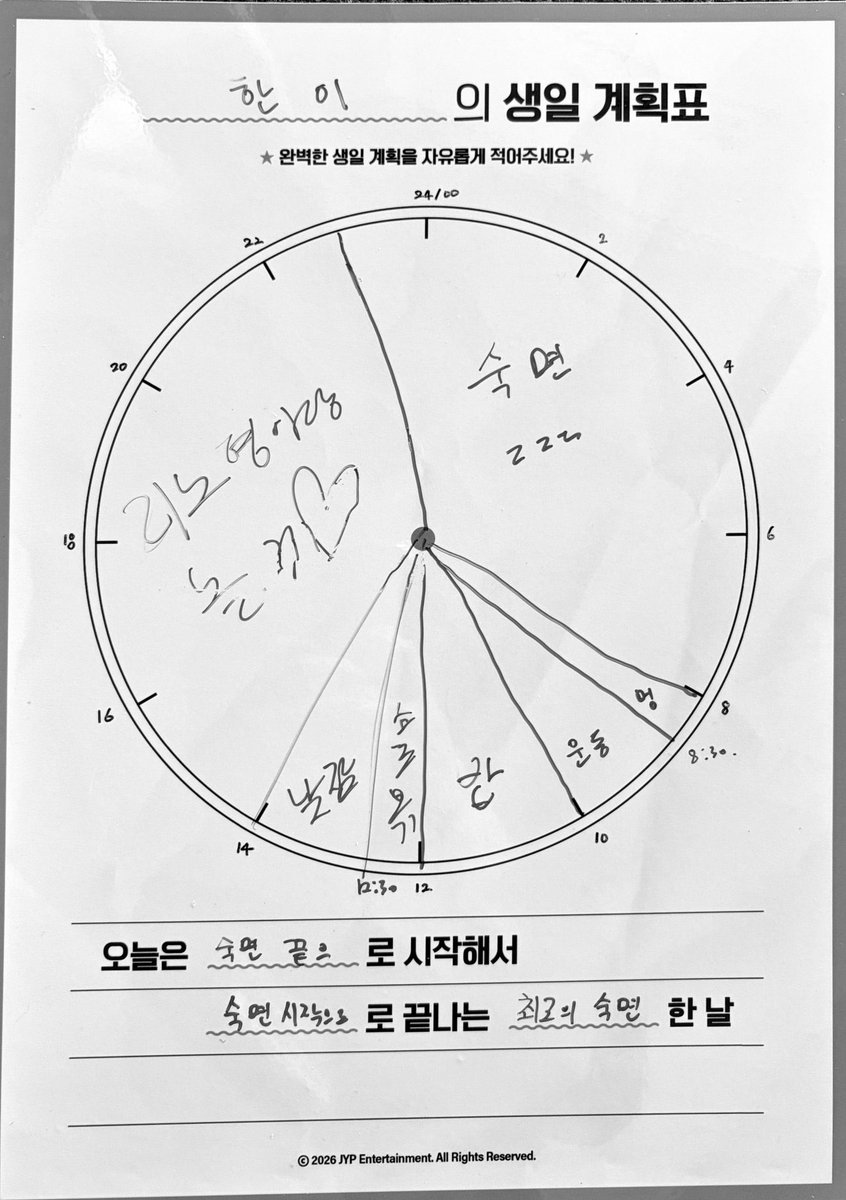 한이의 생일 계획표
★ 완벽한 생일 계획을 자유롭게 적어주세요! ★
24/00
22
2
20
4
숙면
zzz
리노 형아랑
논 거♡
18
6
16
8
멍
8:30.
운동
밥
낮잠
14
10
12:30
12
오늘은 숙면 끝으로 시작해서
숙면 시작으로 로 끝나는 최고의 숙면 한 날
© 2026 JYP Entertainment. All Rights Reserved.